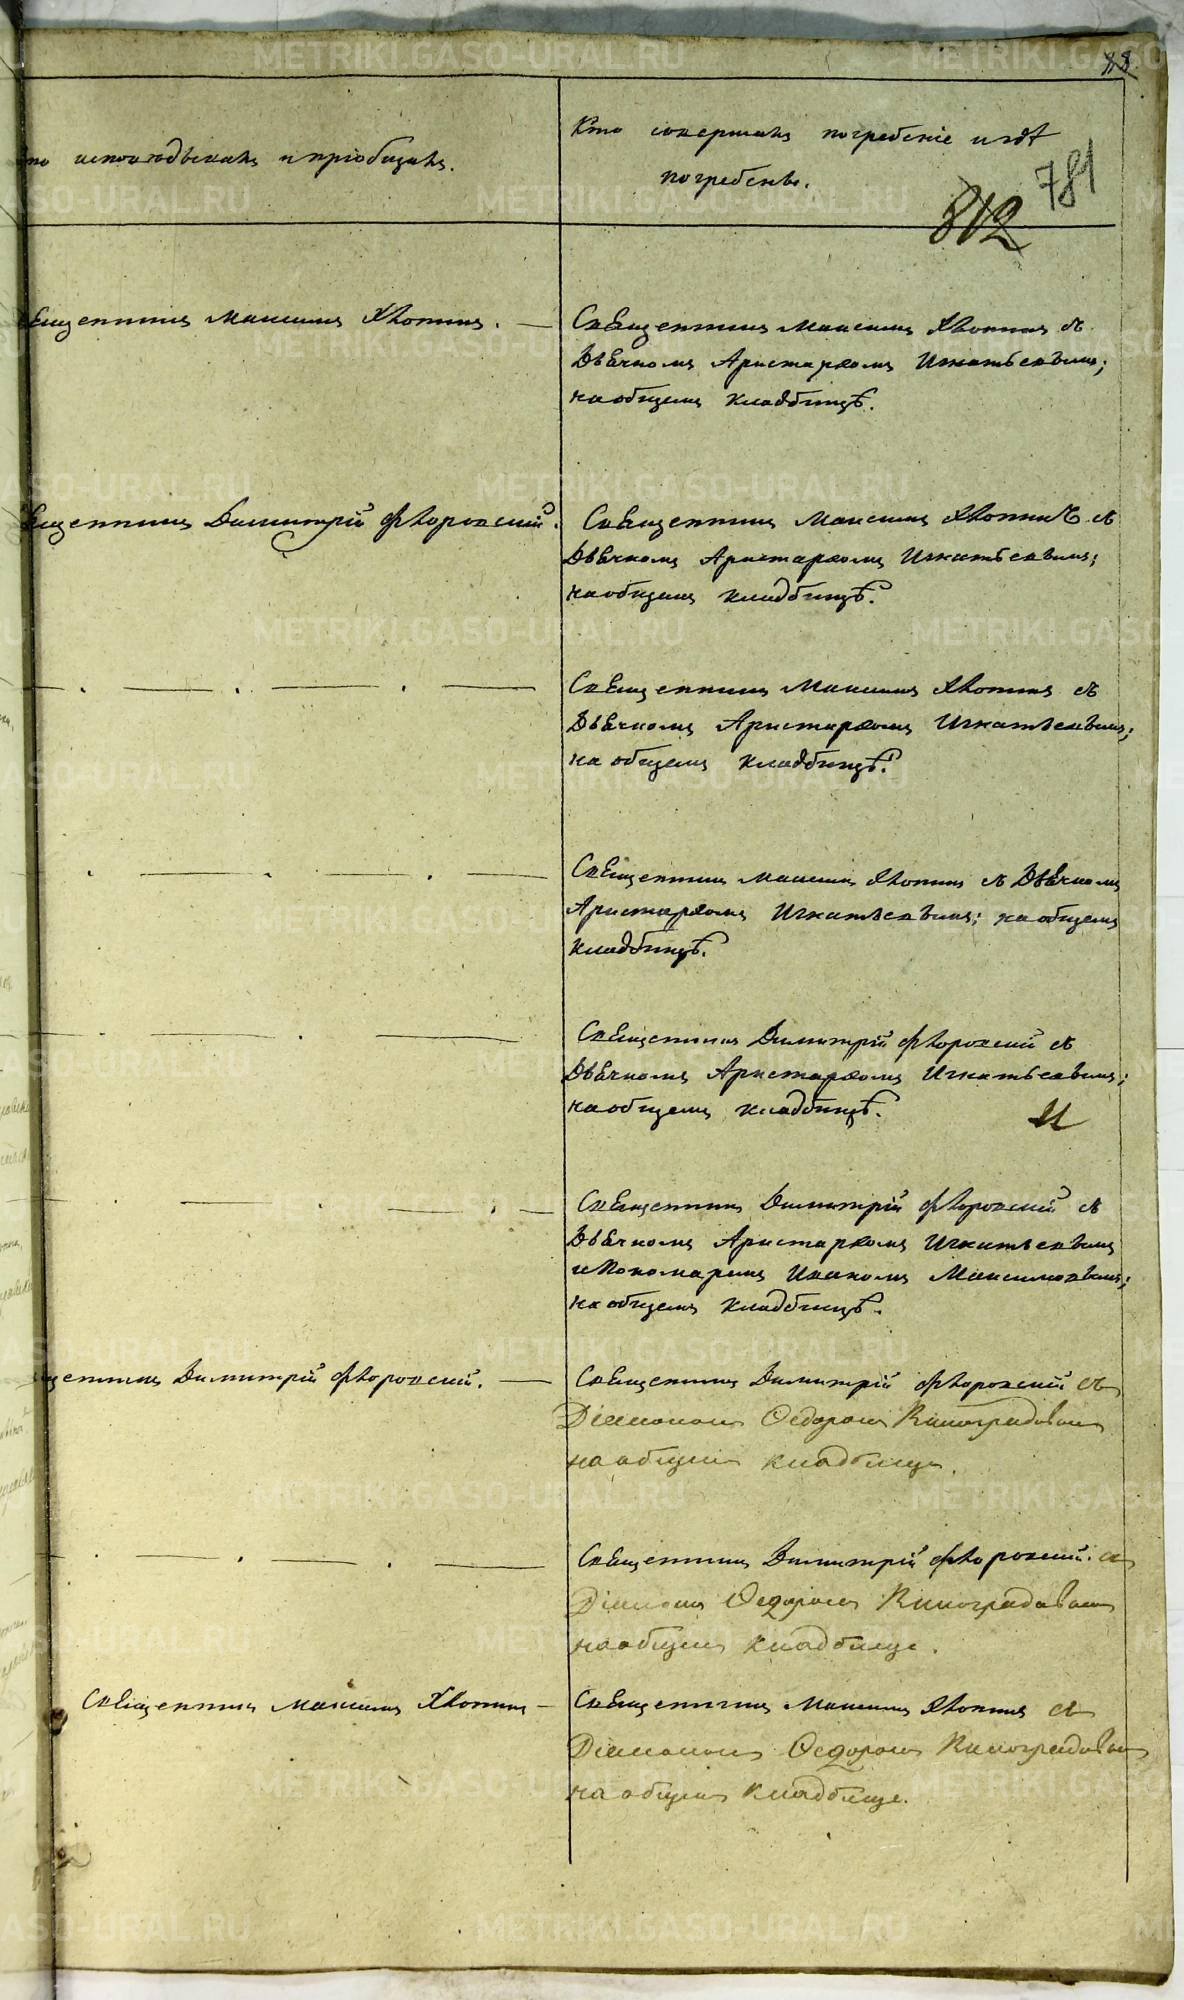 Кто исповѣдывалъ и пріобщалъ.
Кто совершалъ погребеніе и гдѣ
погребены.
812
781
Священникъ Максимъ Хлопинъ. —
Священникъ Максимъ Хлопинъ съ
Дьячкомъ Аристархомъ Игнатьевымъ;
на общемъ кладбищѣ.
Священникъ Димитрій Флоровскій.
Священникъ Максимъ Хлопинъ съ
Дьячкомъ Аристархомъ Игнатьевымъ;
на общемъ кладбищѣ.
Священникъ Максимъ Хлопинъ съ
Дьячкомъ Аристархомъ Игнатьевымъ;
на общемъ кладбищѣ.
Священникъ Максимъ Хлопинъ съ Дьячкомъ
Аристархомъ Игнатьевымъ; на общемъ
кладбищѣ.
Священникъ Димитрій Флоровскій съ
Дьячкомъ Аристархомъ Игнатьевымъ;
на общемъ кладбищѣ.
Священникъ Димитрій Флоровскій съ
Дьячкомъ Аристархомъ Игнатьевымъ
и Пономаремъ Иваномъ Максимовымъ;
на общемъ кладбищѣ.
Священникъ Димитрій Флоровскій. —
Священникъ Димитрій Флоровскій съ
Діакономъ Ѳедоромъ Виноградовымъ
на общемъ кладбище.
Священникъ Димитрій Флоровскій. съ
Діакономъ Ѳедоромъ Виноградовымъ
на общемъ кладбище.
Священникъ Максимъ Хлопинъ —
Священникъ Максимъ Хлопинъ съ
Діакономъ Ѳедоромъ Виноградовымъ
на общемъ кладбище.
METRIKI.GASO-URAL.RU